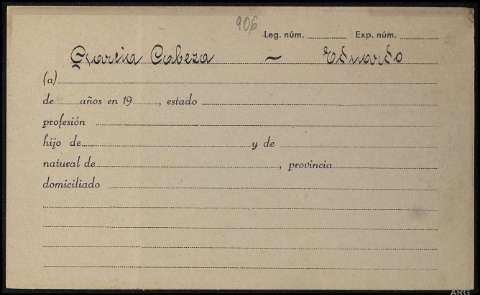 906
Leg. núm. Exp. núm.
Garcia Cabeza ~ Eduardo
(a)
de años en 19 , estado
profesión
hijo de y de
natural de , provincia
domiciliado
ARG